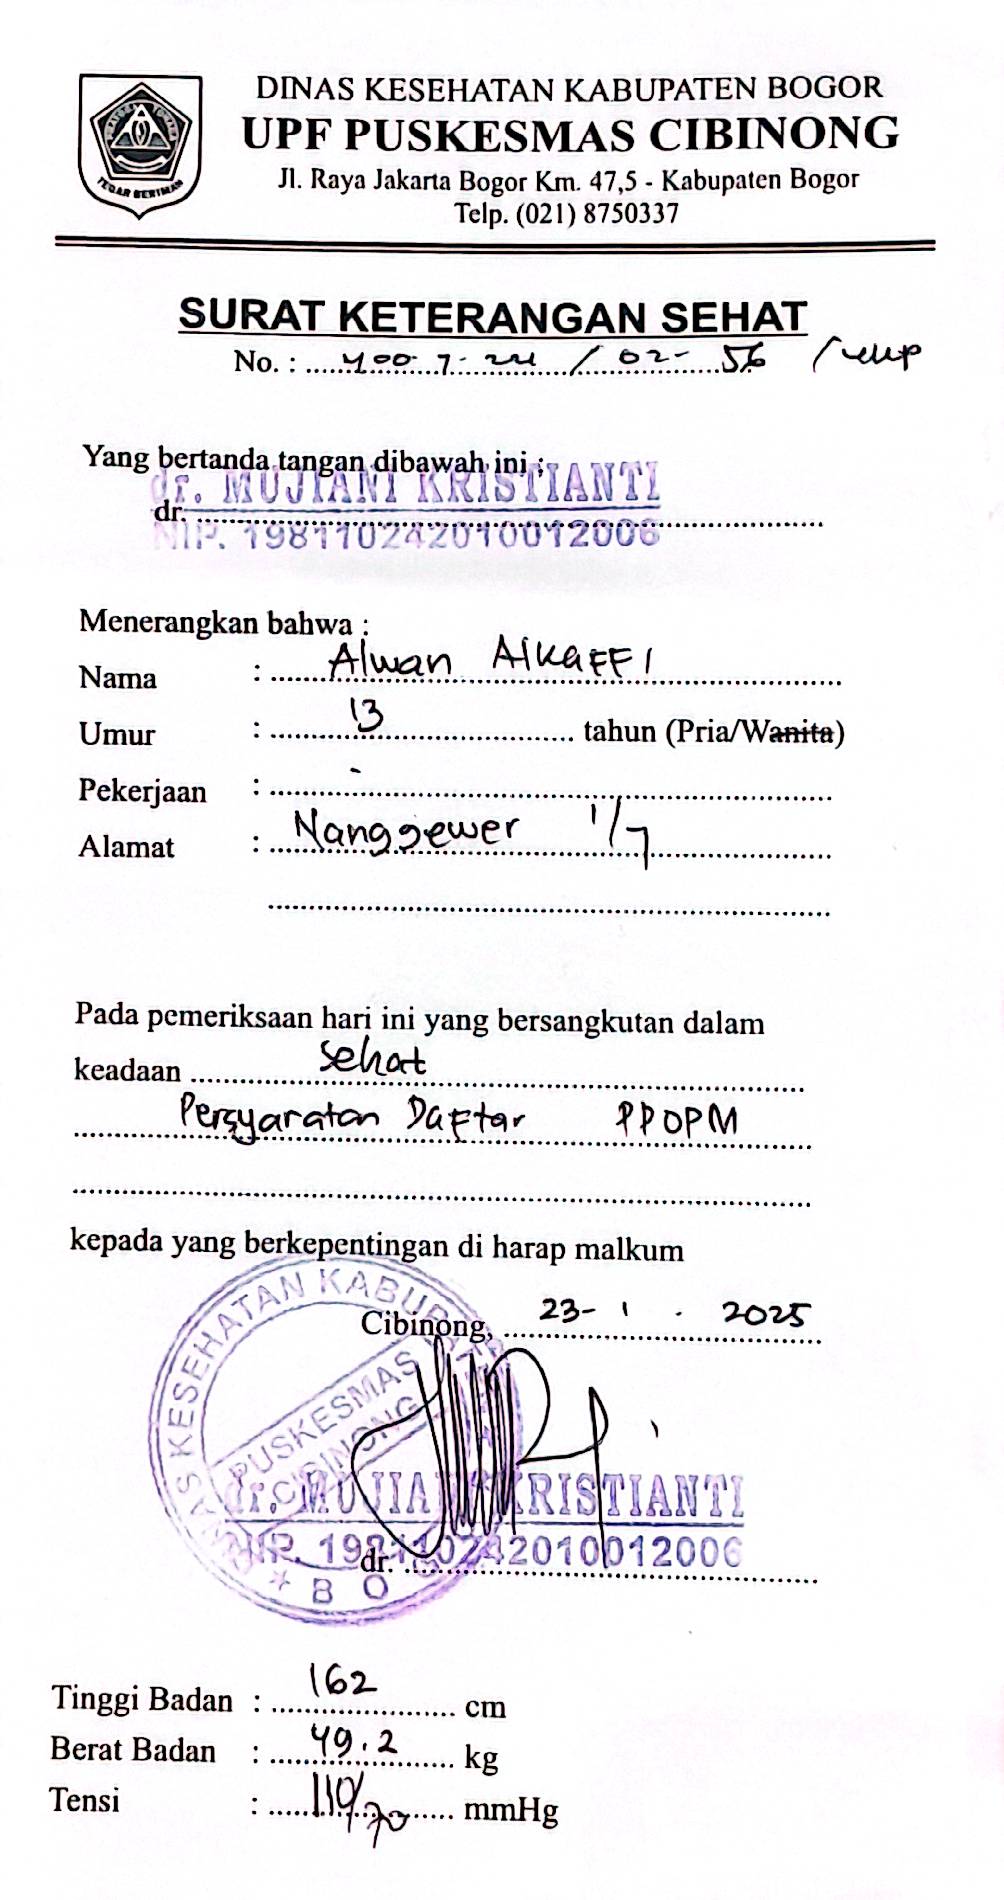 TEGAR BERIMAN
DINAS KESEHATAN KABUPATEN BOGOR
UPF PUSKESMAS CIBINONG
Jl. Raya Jakarta Bogor Km. 47,5 - Kabupaten Bogor
Telp. (021) 8750337
SURAT KETERANGAN SEHAT
No. : 400.7.24 / 02- 56 /
Yang bertanda tangan dibawah ini :
dr. MUJIANI KRISTIANTI
dr.
NIP. 198110242010012006
Menerangkan bahwa :
Nama : Alwan AlkaFFI
Umur : 13 tahun (Pria/Wanita)
Pekerjaan : -
Alamat : Nanggewer 1/7
Pada pemeriksaan hari ini yang bersangkutan dalam
keadaan sehat
Persyaratan Daftar PPOPM
kepada yang berkepentingan di harap malkum
Cibinong, 23- 1 . 2025
DINAS KESEHATAN KABUPATEN
PUSKESMAS
CIBINONG
dr. MUJIANI KRISTIANTI
NIP. 198110242010012006
dr.
* B O
Tinggi Badan : 162 cm
Berat Badan : 49.2 kg
Tensi : 110/70 mmHg